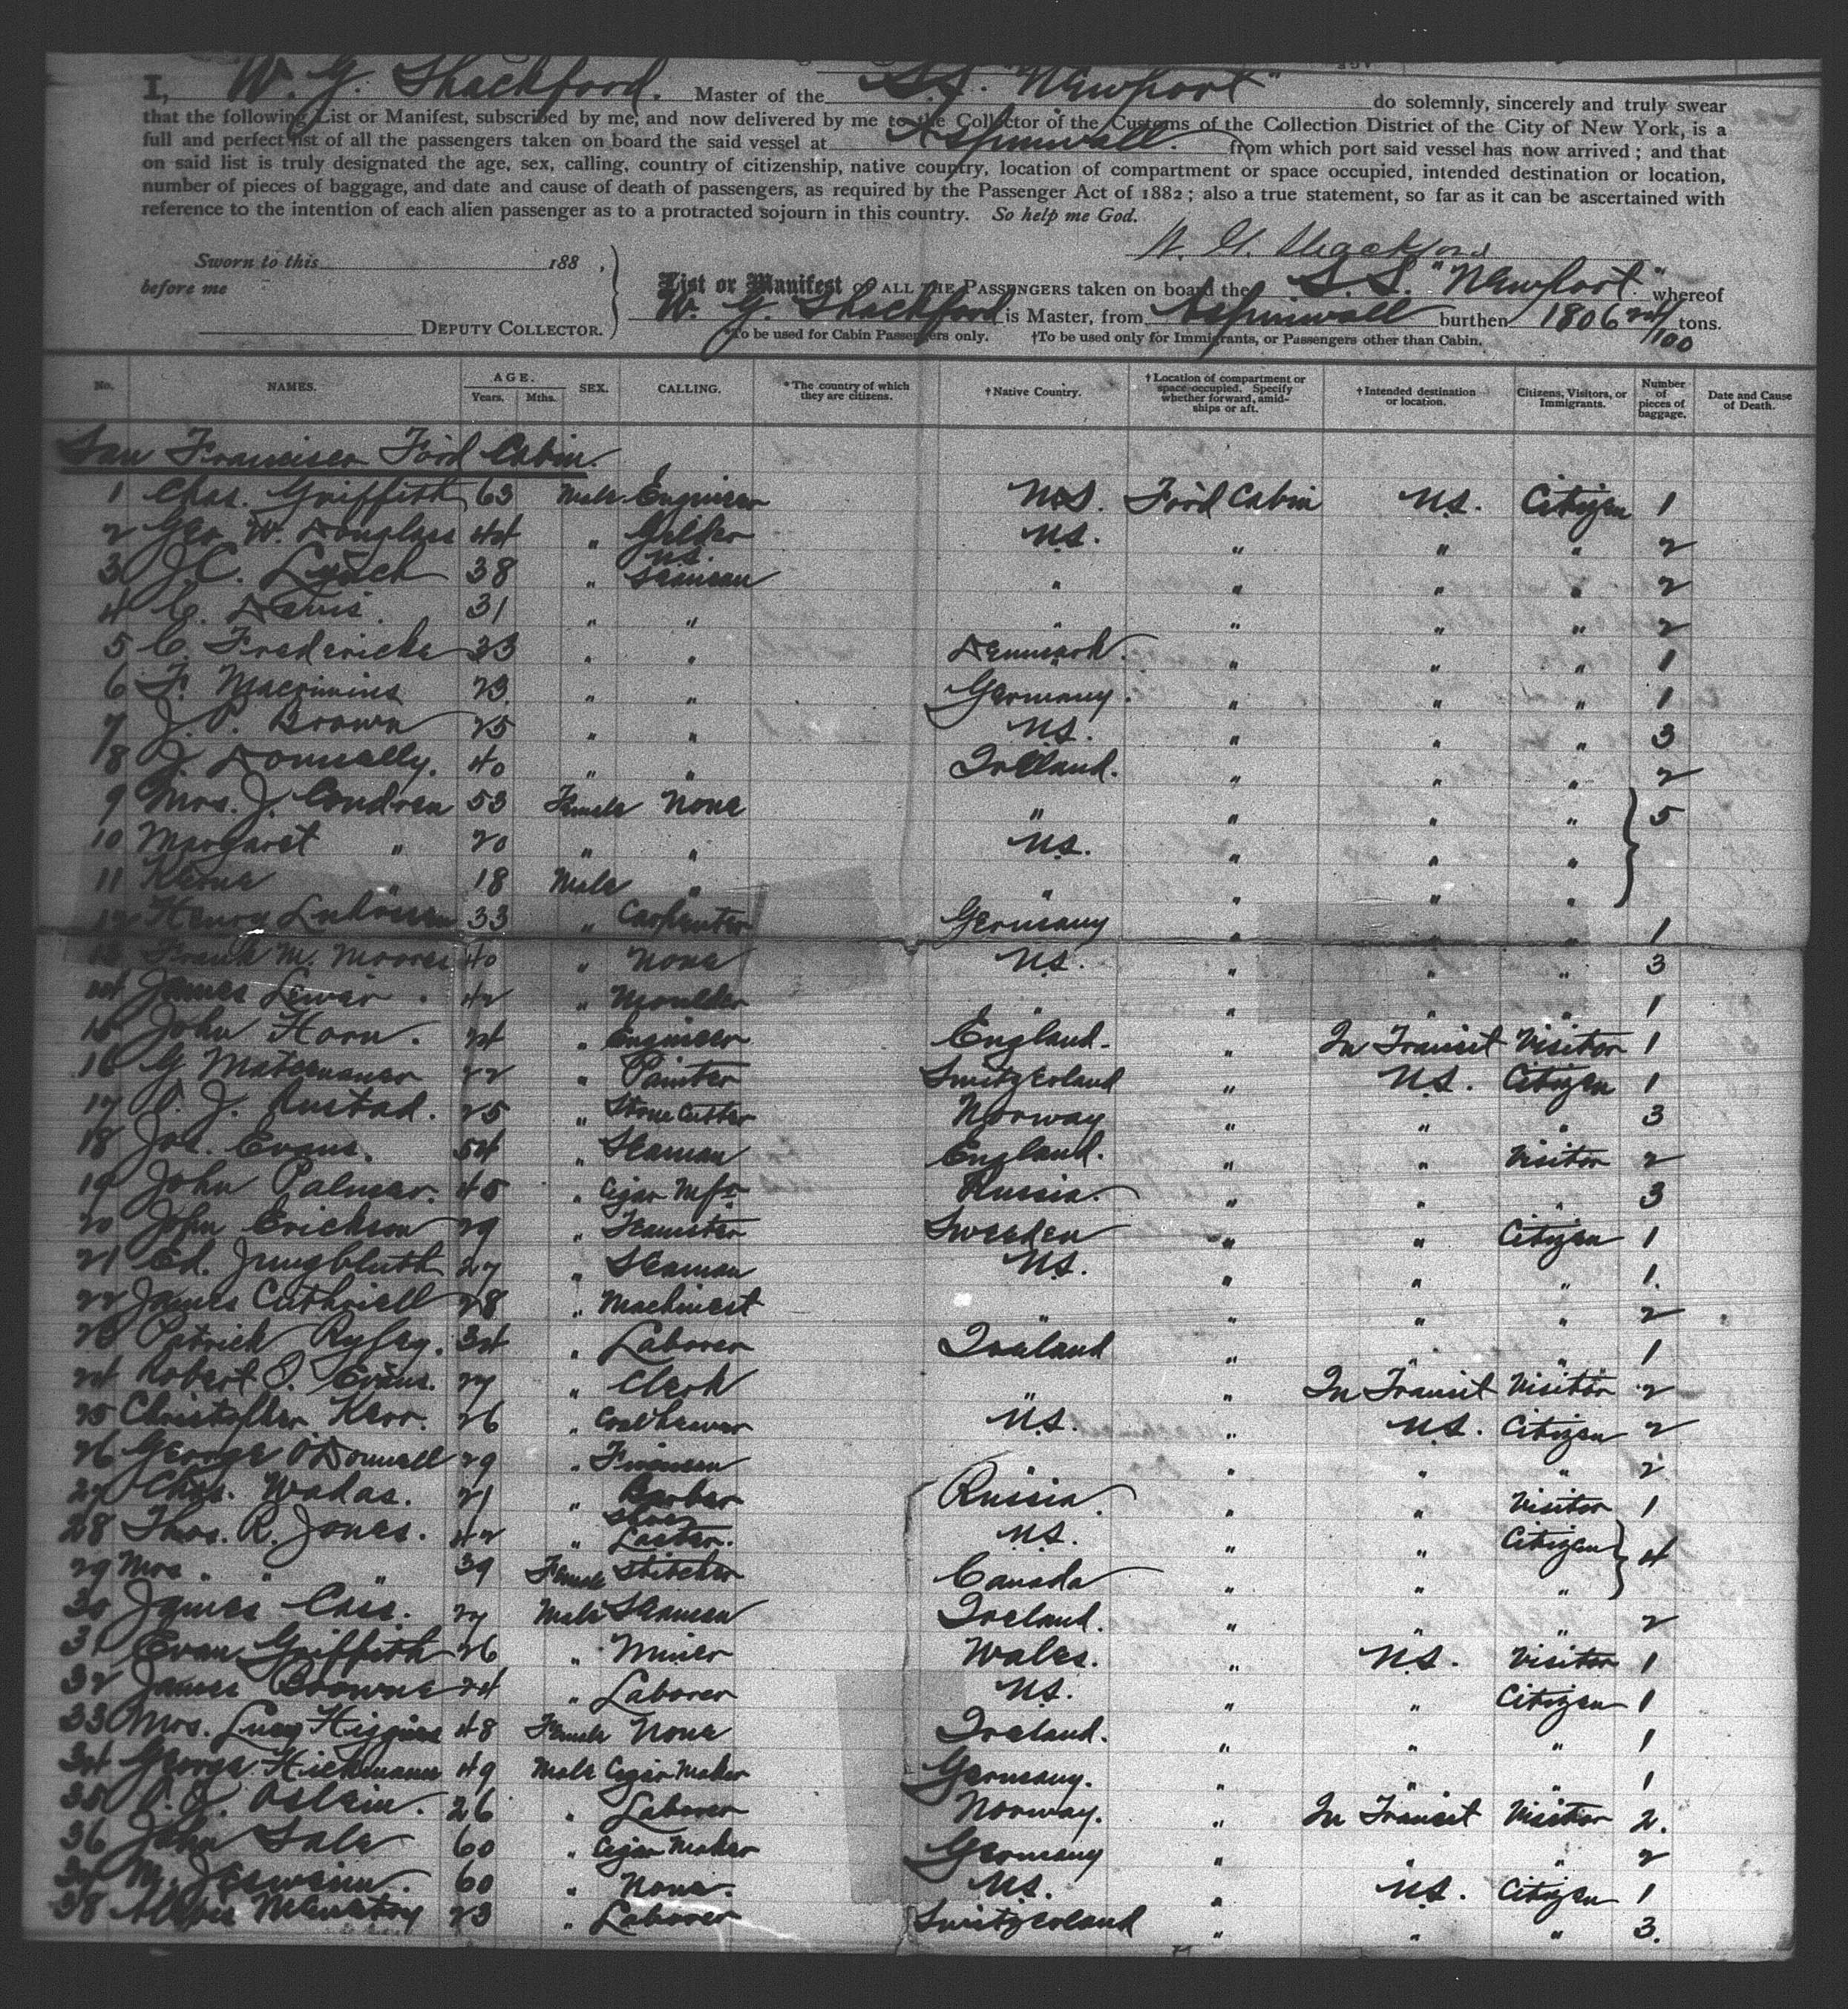 I, W. G. Shackford. Master of the S.S. "Newport" do solemnly, sincerely and truly swear
that the following List or Manifest, subscribed by me, and now delivered by me to the Collector of the Customs of the Collection District of the City of New York, is a
full and perfect list of all the passengers taken on board the said vessel at Aspinwall. from which port said vessel has now arrived; and that
on said list is truly designated the age, sex, calling, country of citizenship, native country, location of compartment or space occupied, intended destination or location,
number of pieces of baggage, and date and cause of death of passengers, as required by the Passenger Act of 1882; also a true statement, so far as it can be ascertained with
reference to the intention of each alien passenger as to a protracted sojourn in this country. So help me God.
W. G. Shackford
Sworn to this 188 ,
before me
DEPUTY COLLECTOR.
List or Manifest OF ALL THE PASSENGERS taken on board the S.S. "Newport" whereof
W. G. Shackford is Master, from Aspinwall burthen 1806 24/100 tons.
*To be used for Cabin Passengers only. †To be used only for Immigrants, or Passengers other than Cabin.
No. NAMES. AGE. Years. Mths. SEX. CALLING. *The country of which they are citizens. †Native Country. †Location of compartment or space occupied. Specify whether forward, amidships or aft. †Intended destination or location. Citizens, Visitors, or Immigrants. Number of pieces of baggage. Date and Cause of Death.
San Francisco For'd Cabin.
1 Chas. Griffith 63 Male Engineer U.S. For'd Cabin U.S. Citizen 1
2 Geo. W. Douglass 44 " Gilder U.S. " " " 2
3 J.C. Lynch 38 " U.S. Seaman " " " " 2
4 C. Davis 31 " " " " " " 2
5 C. Fredericks 33 " " Denmark. " " " 1
6 F. 23 " " Germany. " " " 1
7 J. P. Brown 25 " " U.S. " " " 3
8 J. Donnelly. 40 " " Ireland. " " " 2
9 Mrs. J. Condren 53 Female None " " " " } 5
10 Margaret " 20 " " U.S. " " "
11 " 18 Male " " " " "
12 Henry 33 " Carpenter Germany " " " 1
13 Frank M. Moores 40 " None U.S. " " " 3
14 James Lewis. 42 " Moulder " " " " 1
15 John Horn. 24 " Engineer England. " In Transit Visitor 1
16 G 22 " Painter Switzerland " U.S. Citizen 1
17 O. J. Rustad. 25 " Stone Cutter Norway " " " 3
18 Jos. Evans. 54 " Seaman England. " " Visitor 2
19 John Palmer. 45 " Cigar Mfr Russia. " " " 3
20 John Erickson 29 " Teamster Sweeden " " Citizen 1
21 Ed. Jungbluth 27 " Seaman U.S. " " " 1.
22 James Cuthriell 28 " Machinest " " " " 2
23 Patrick 34 " Laborer Ireland " " " 1
24 Robert P. Evans. 27 " Clerk " " In Transit Visitor 2
25 Christopher Kerr. 26 " Coal hewer U.S. " U.S. Citizen 2
26 George O'Donnell 29 " Fireman " " " " 2
27 Chas. Wadas. 21 " Barber Russia. " " Visitor 1
28 Thos. R. Jones. 42 " Shoe Laster. U.S. " " Citizen } 4
29 Mrs. " " 39 Female Stitcher Canada " " "
30 James Cass. 27 Male Seaman Ireland. " " " 2
31 Evan Griffith 26 " Miner Wales. " U.S. Visitor 1
32 James Browne 24 " Laborer U.S. " " Citizen 1
33 Mrs. Lucy Higgins 48 Female None Ireland. " " " 1
34 George Hickmann 49 Male Cigar Maker Germany. " " " 1
35 O. J. 26 " Laborer Norway. " In Transit Visitor 2.
36 John Sala 60 " Cigar Maker Germany " " " 2
37 M. 60 " None. U.S. " U.S. Citizen 1
38 23 " Laborer Switzerland " " " 3.